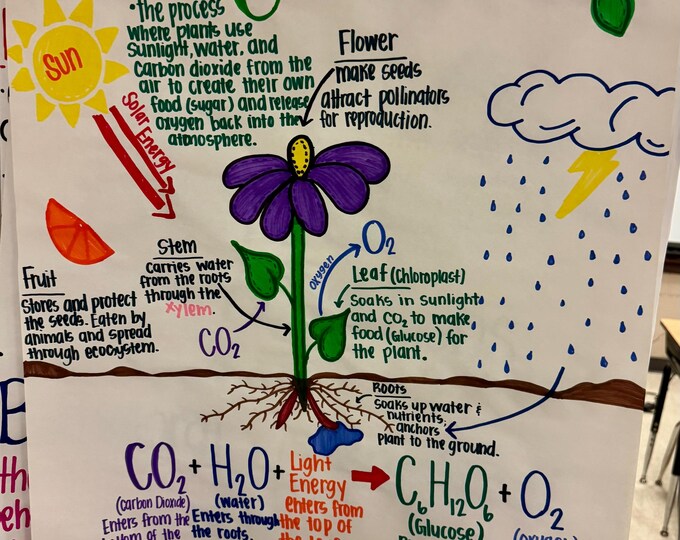 •The process
where plants use
Sunlight, water, and
Carbon dioxide from the
air to create their own
food (sugar) and release
oxygen back into the
atmosphere.
Sun
Solar Energy
Flower
make seeds
attract pollinators
for reproduction.
Stem
Carries water
from the roots
through the
xylem.
Fruit
Stores and protect
the seeds. Eaten by
animals and spread
through ecosystem.
CO2
oxygen
O2
Leaf (Chloroplast)
Soaks in sunlight
and CO2 to make
food (Glucose) for
the plant.
Roots
Soaks up water &
nutrients,
anchors
Plant to the ground.
CO2 + H2O + Light Energy → C6H12O6 + O2
(Carbon Dioxide)
Enters from the
(Water)
Enters through
the roots.
enters from
the top of
(Glucose)
B